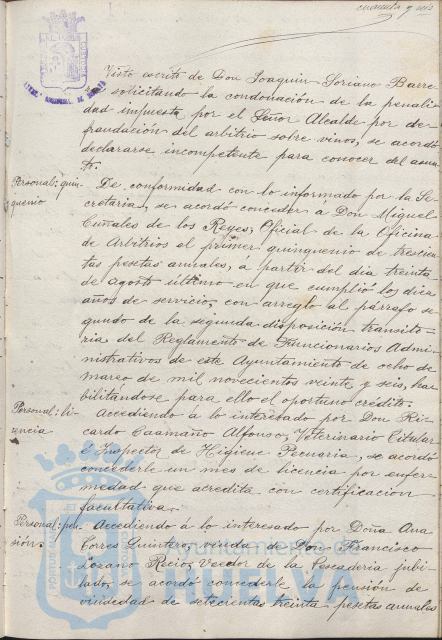 cuarenta y seis
Visto escrito de Don Joaquin Soriano Barre-
solicitando la condonación de la penali-
dad impuesta por el Señor Alcalde por de-
fraudación del arbitrio sobre vinos, se acordó
declararse incompetente para conocer del asun-
to.
Personal: quin-
quenio
De conformidad con lo informado por la Se-
cretaria, se acordó conceder á Don Miguel
Cuñales de los Reyes, Oficial de la Oficina
de Arbitrios el primer quinquenio de trescien-
tas pesetas anuales, á partir del dia treinta
de agosto último en que cumplió los diez
años de servicio, con arreglo al párrafo se-
gundo de la segunda disposición transito-
ria del Reglamento de Funcionarios Admi-
nistrativos de este Ayuntamiento de ocho de
marzo de mil novecientos veinte y seis, ha-
bilitándose para ello el oportuno crédito.
Personal: li-
cencia
Accediendo á lo interesado por Don Ri-
cardo Caamaño Alfonso, Veterinario Titular
é Inspector de Higiene Pecuaria, se acordó
concederle un mes de licencia por enfer-
medad que acredita con certificacion
facultativa.
Personal: pen-
sión.
Accediendo á lo interesado por Doña Ana
Torres Quintero, viuda de Don Francisco
Lozano Recio, Veedor de la Pescaderia jubi-
lado, se acordó concederle la pensión de
viudedad de setecientas treinta pesetas anuales
Ayuntamiento de
HUELVA